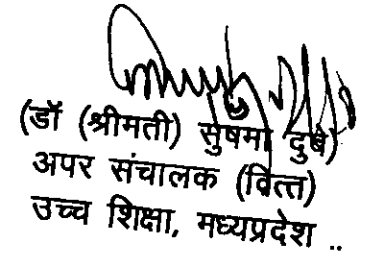 (डॉ (श्रीमती) सुषमा दुबे)
अपर संचालक (वित्त)
उच्च शिक्षा, मध्यप्रदेश ..